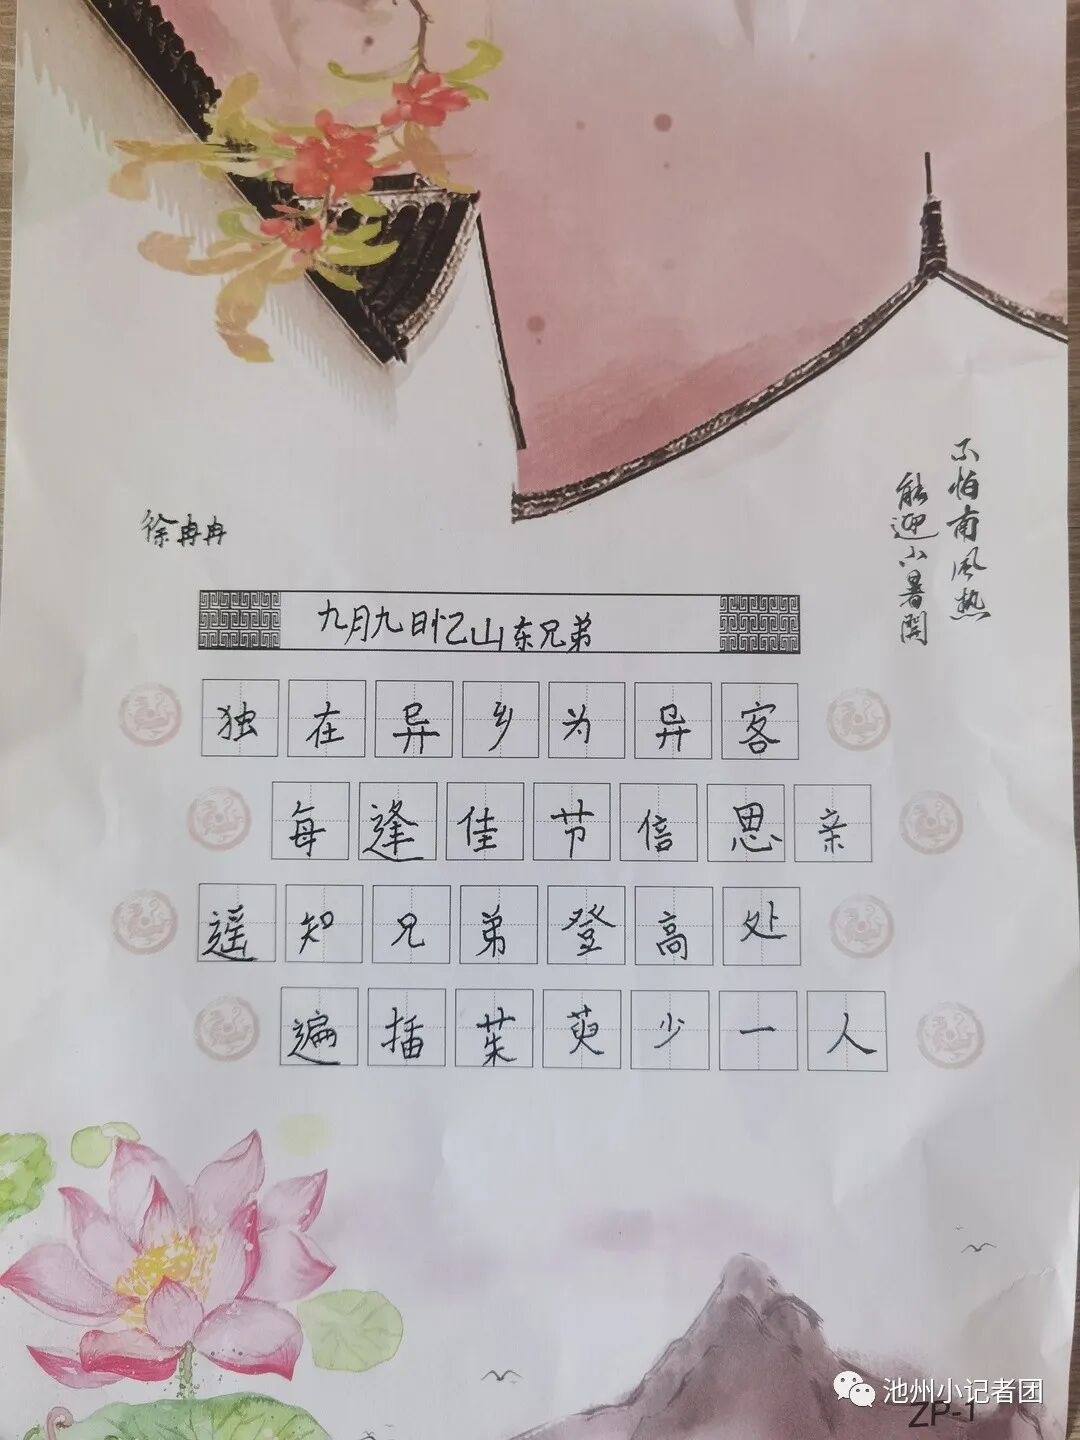 不怕南风热
能迎小暑開
徐冉冉
九月九日忆山东兄弟
独在异乡为异客
每逢佳节信思亲
遥知兄弟登高处
遍插茱萸少一人
池州小记者团
ZP-1